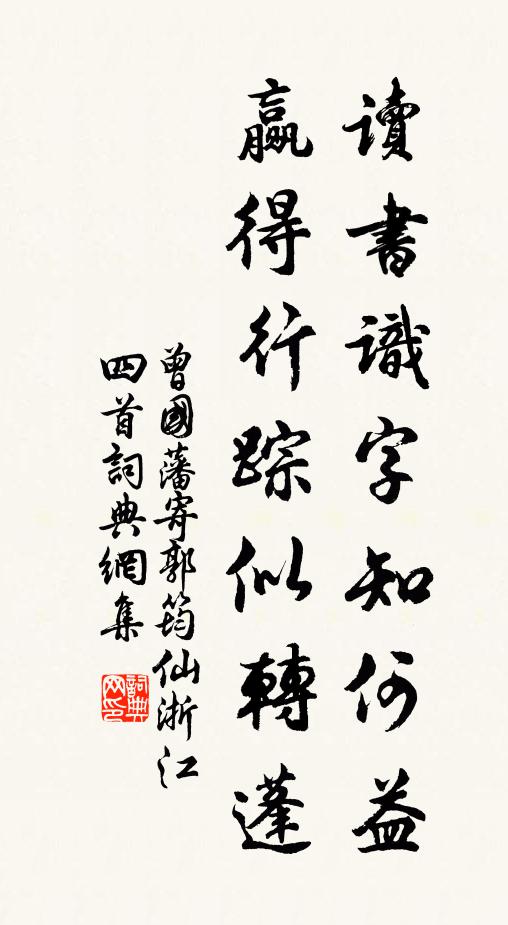 讀書識字知何益
贏得行踪似轉蓬
曾國藩寄郭筠仙浙江
四首詞典網集
詞典网印